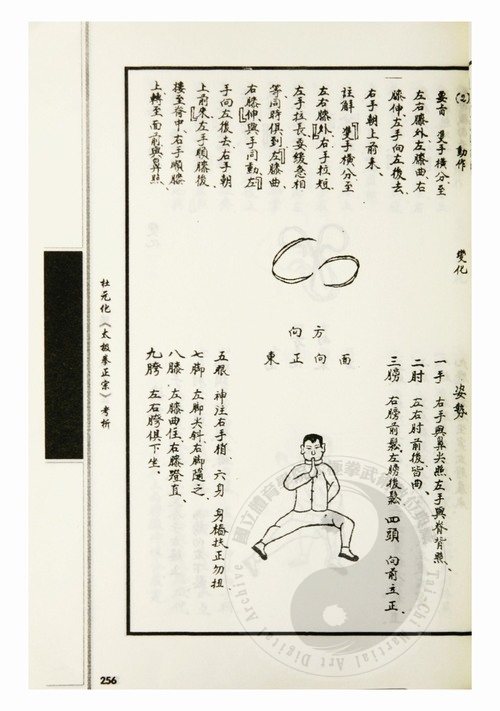 (2) 動作
要言 準手橫分至
左右膝外、左膝曲、右
膝伸、左手向左後去、
右手朝上前來、
註解 準手橫分至
左右膝外、右手拉短、
左手拉長、要緩急相
等、同時俱到左膝曲、
右膝伸、與手同動、左
手向左後去、右手朝
上前來、左手順膝後
摟至脊中、右手順膝
上轉至面前與鼻照、
變化
面向方向正東
姿勢
一手 右手與鼻尖照、左手與脊背照、
二肘 左右肘前後皆曲、
三膀 右膀前鬆、左膀後鬆 四頭 向前立正、
五眼 神注右手梢、 六身 身樁扶正勿扭
七腳 左腳尖斜、右腳隨之、
八膝 左膝曲住、右膝蹬直、
九胯 左右胯俱下坐、
杜元化《太极拳正宗》考析
256
國立體育
Tai-Chi Martial Art Digital Archive